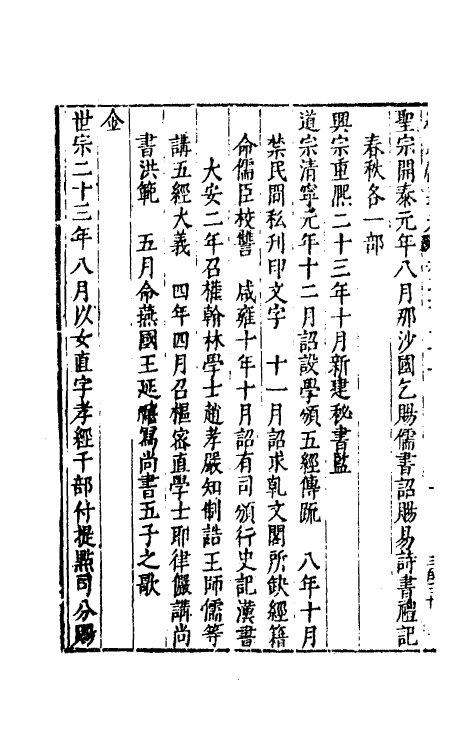 聖宗開泰元年八月那沙國乞賜儒書詔賜易詩書禮記
春秋各一部
興宗重熙二十三年十月新建秘書監
道宗清寧元年十二月詔設學頒五經傳疏　八年十月
禁民間私刊印文字　十一月詔求乾文閣所缺經籍
命儒臣校讐　咸雍十年十月詔有司頒行史記漢書
大安二年召權翰林學士趙孝嚴知制誥王師儒等
講五經大義　四年四月召樞密直學士耶律儼講尚
書洪範　五月命燕國王延禧寫尚書五子之歌
金
世宗二十三年八月以女直字孝經千部付提點司分賜